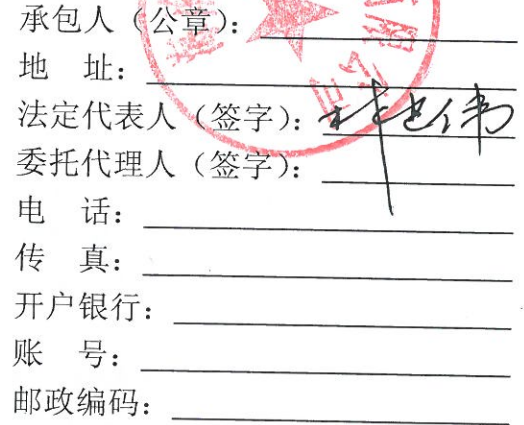 承包人（公章）：
地 址：
法定代表人（签字）：
委托代理人（签字）：
电 话：
传 真：
开户银行：
账 号：
邮政编码：